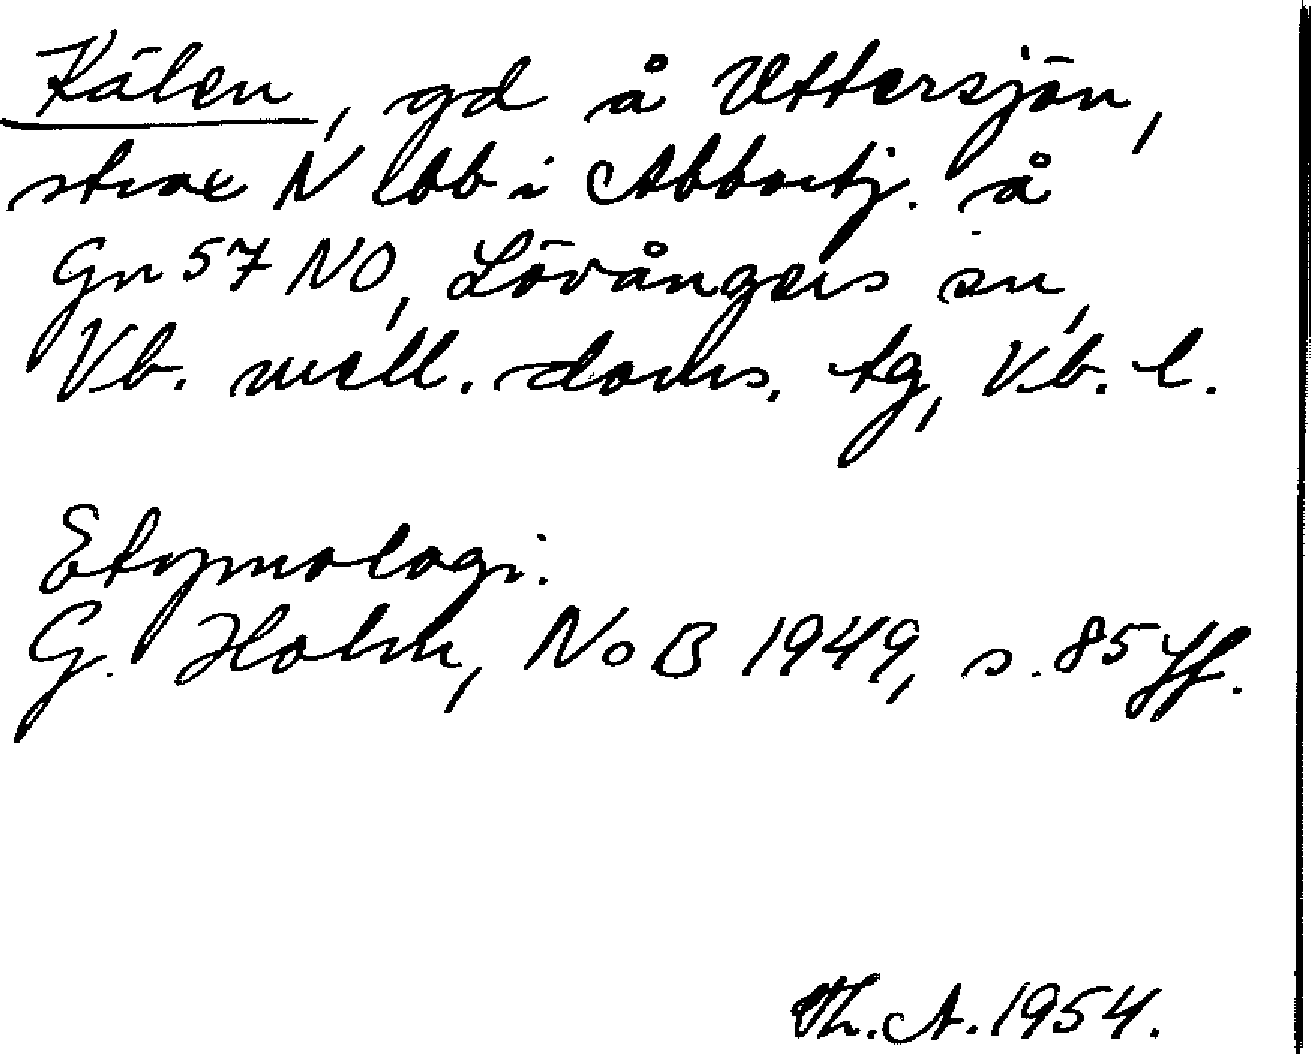 Kälen, gd å Uttersjön,
strax N bb i Abbortj. å
Gn 57 NO, Lövångers sn,
Vb. mell. doms. tg, Vb. l.
Etymologi.
G. Holm, NoB 1949, s. 85 ff.
Th. A. 1954.